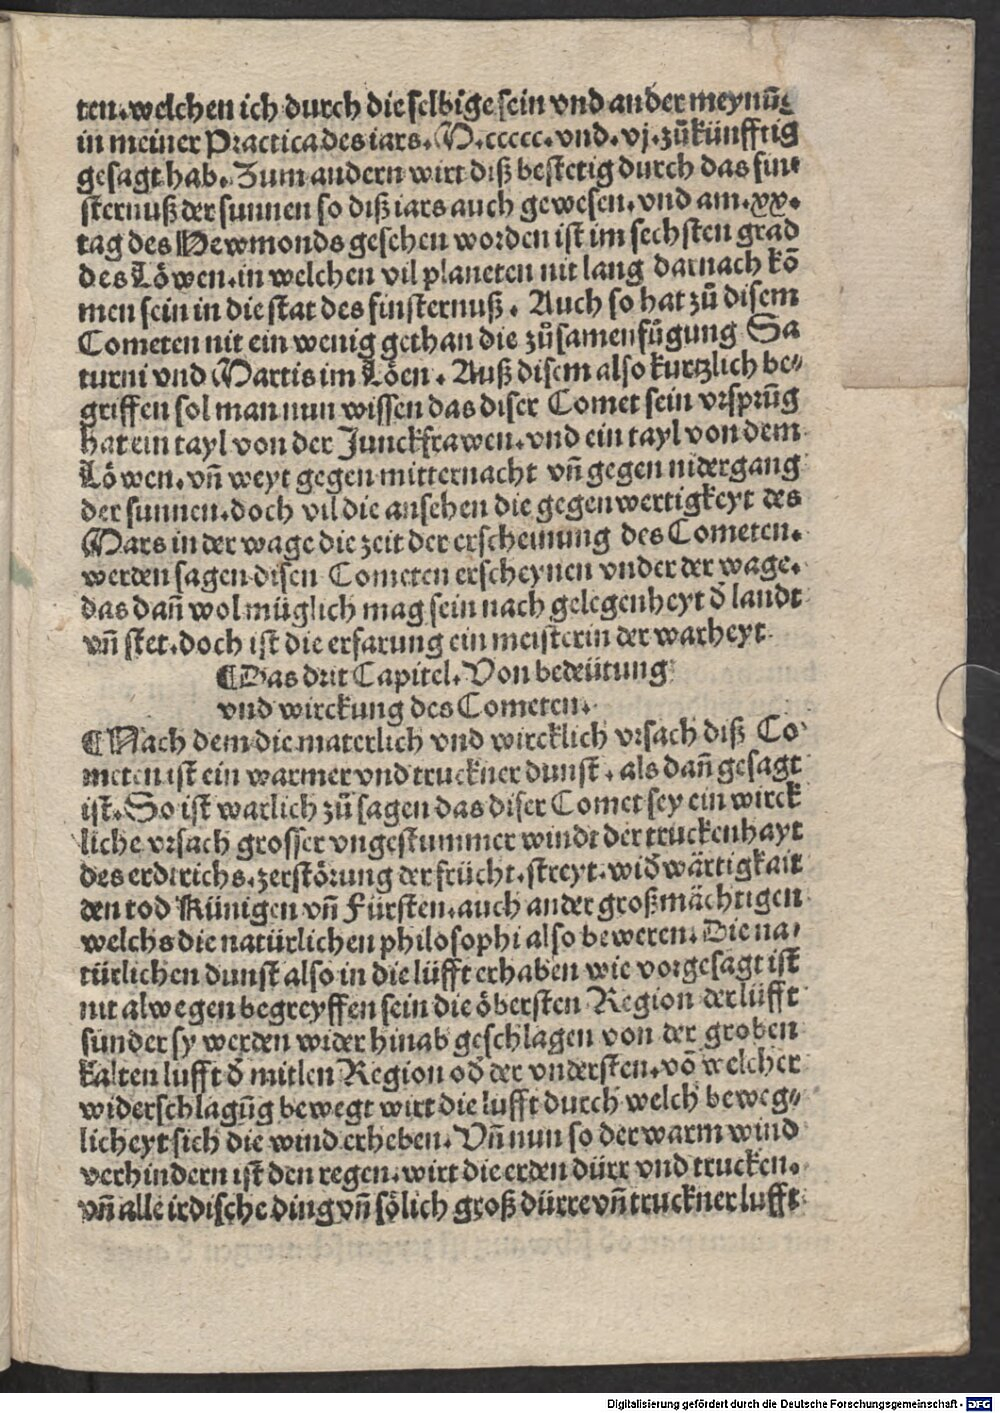 ten.welchen ich durch die selbige sein vnd ander meynũg
in meiner Practica des iars.M.ccccc.vnd.vj.zůkünfftig
gesagt hab. Zum andern wirt diß bestetig durch das fin-
sternuß der sunnen so diß iars auch gewesen.vnd am.xx.
tag des Hewmonds gesehen worden ist im sechsten grad
des Löwen.in welchen vil planeten nit lang darnach kõ
men sein in die stat des finsternuß. Auch so hat zů disem
Cometen nit ein wenig gethan die zůsamenfügung Sa
turni vnd Martis im Löen. Auß disem also kurtzlich be-
griffen sol man nun wissen das diser Comet sein vrsprũg
hat ein tayl von der Junckfrawen.vnd ein tayl von dem
Löwen.vñ weyt gegen mitternacht vñ gegen nidergang
der sunnen.doch vil die ansehen die gegenwertigkeyt des
Mars in der wage die zeit der erscheinung des Cometen.
werden sagen disen Cometen erscheynen vnder der wage.
das dañ wol müglich mag sein nach gelegenheyt ð landt
vñ stet.doch ist die erfarung ein meisterin der warheyt.
¶Das drit Capitel.Von bedeütung
vnd wirckung des Cometen.
¶Nach dem die materlich vnd wircklich vrsach diß Co
meten ist ein warmer vnd truckner dunst.als dañ gesagt
ist.So ist warlich zů sagen das diser Comet sey ein wirck
liche vrsach grosser vngestummer windt der truckenhayt
des erdtrichs.zerstörung der frücht.streyt.widwärtigkait
den tod Künigen vñ Fürsten.auch ander großmächtigen
welchs die natürlichen philosophi also beweren.Die na-
türlichen dunst also in die lüfft erhaben wie vorgesagt ist
nit alwegen begreyffen sein die öbersten Region der lüfft
sunder sy werden wider hinab geschlagen von der groben
kalten lufft ð mitlen Region oð der vndersten.võ welcher
widerschlagũg bewegt wirt die lufft durch welch beweg-
licheyt sich die wind erheben.Vñ nun so der warm wind
verhindern ist den regen.wirt die erden dürr vnd trucken.
vñ alle irdische ding vñ sölich groß dürre vñ truckner lufft
Digitalisierung gefördert durch die Deutsche Forschungsgemeinschaft - DFG